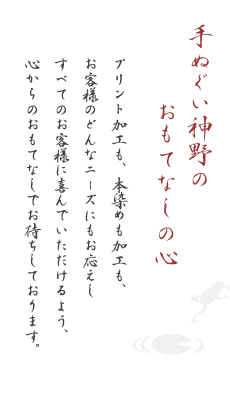 手ぬぐい神野の
おもてなしの心
プリント加工も、本染めも加工も、
お客様のどんなニーズにもお応えし
すべてのお客様に喜んでいただけるよう、
心からのおもてなしでお待ちしております。